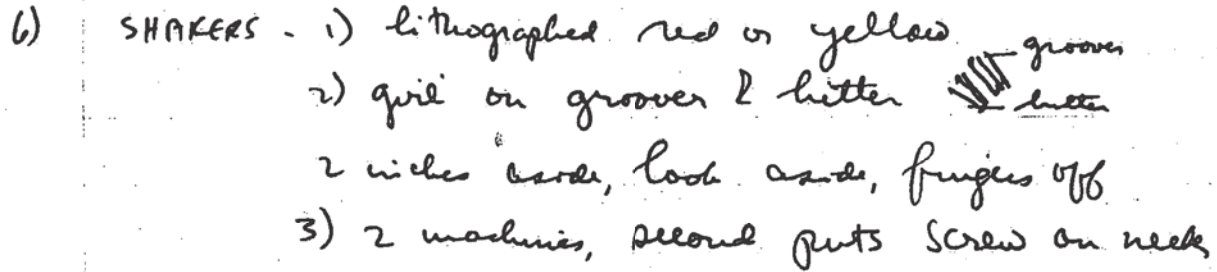 6) SHAKERS - 1) lithographed red or yellow
groover
2) girl on groover &
2 inches aside, look aside, fingers off
3) 2 machines, second puts screw on neck